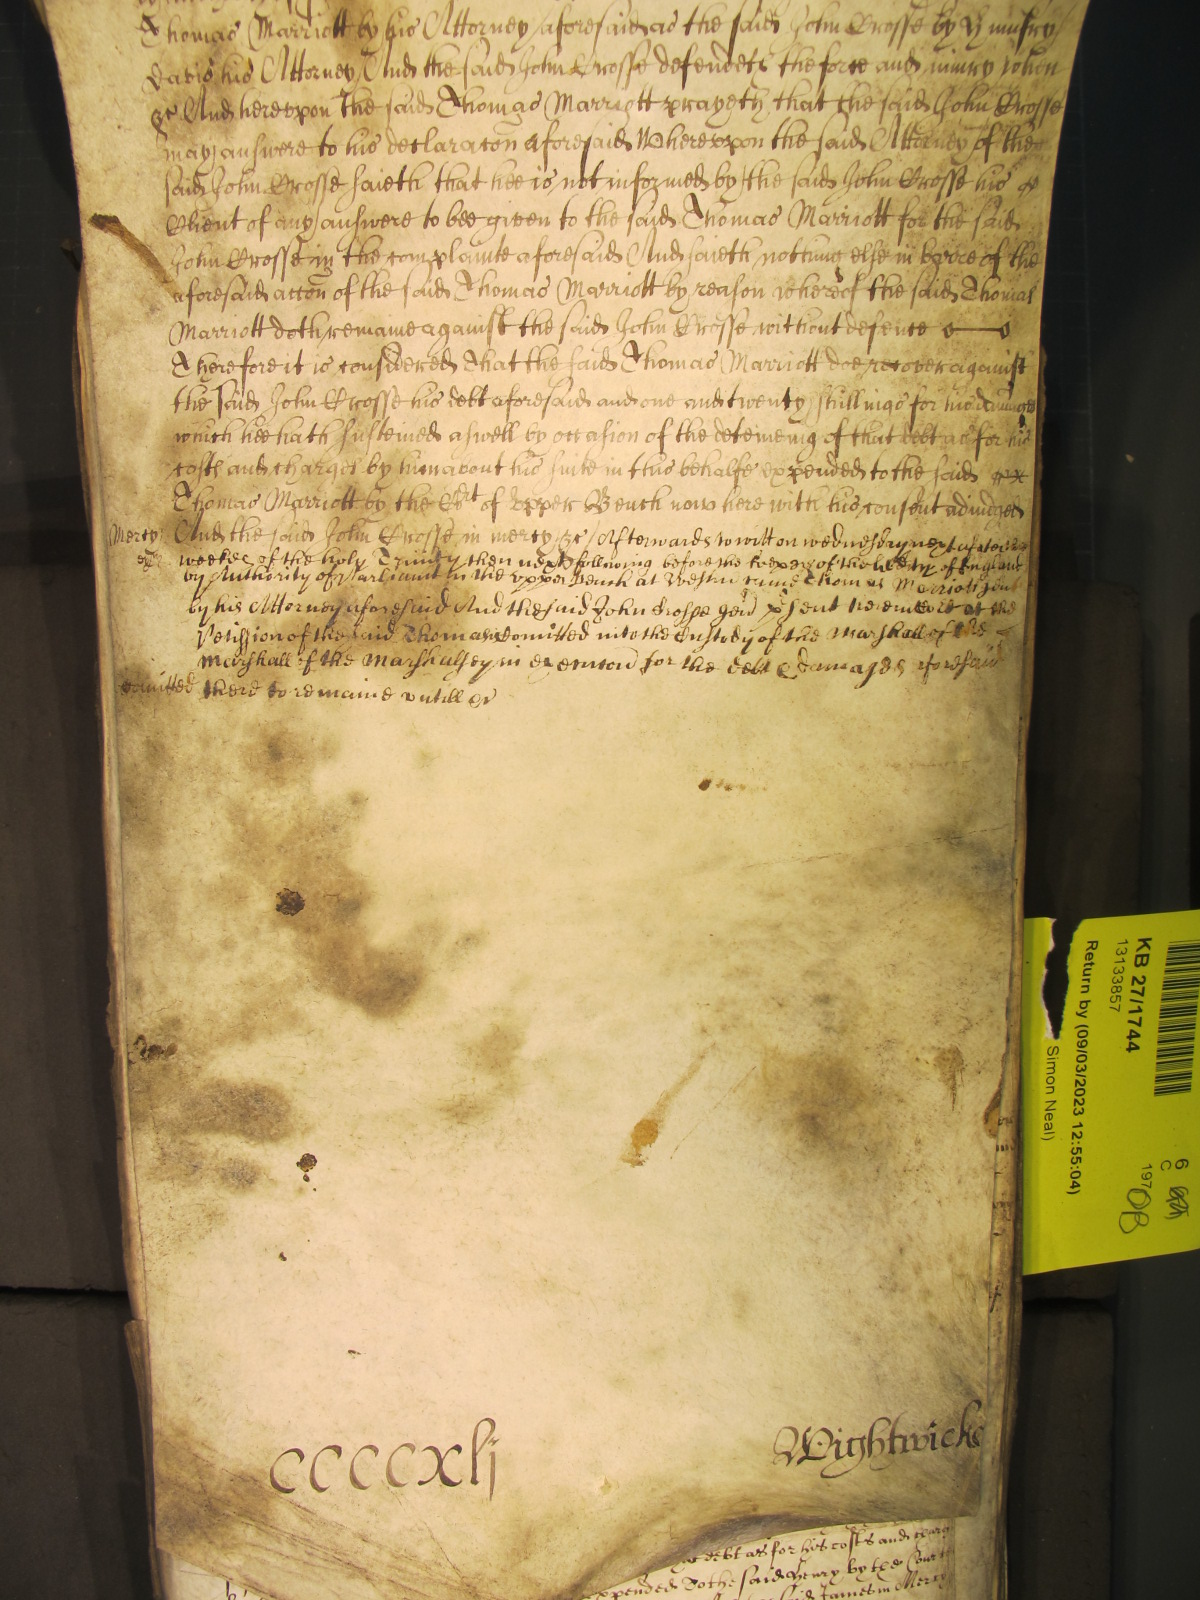 Thomas Marriott by his Attorney aforesaid as the said John Crosse by Humfry
Davis his Attorney And the said John Crosse defendeth the force and iniury when
&c And hereupon the said Thomas Marriott prayeth that the said John Crosse
may answere to his declaracon aforesaid Whereupon the said Attorney of the
said John Crosse saieth that hee is not informed by the said John Crosse his
Client of any answere to bee given to the said Thomas Marriott for the said
John Crosse in the complainte aforesaid And saieth nothing else in barre of the
aforesaid accon of the said Thomas Marriott by reason whereof the said Thomas
Marriott doth remaine against the said John Crosse without defence
Therefore it is considered That the said Thomas Marriott doe recover against
the said John Crosse his debt aforesaid and one and twenty shillings for his damages
which hee hath susteined aswell by occasion of the deteineing of that debt as for his
costs and charges by him about his suite in this behalfe expended to the said
Thomas Marriott by the Cort of Upper Bench now here with his consent adiudged
Mercy And the said John Crosse in mercy &c Afterwards to witt on wednesday next after
weekes of the holy Trinity then next following before the keepers of the liberty of England
by Authority of Parliament in the upper bench at Westm came Thomas Marriott
by his Attorney aforesaid And the said John Crosse present here in Court at the
Petission of the said Thomas is comitted into the Custody of the Marshall of the
Marshall of the Marshalsey in execucon for the debt & damages aforesaid
comitted there to remaine untill &c
CCCCxlj
Wightwicke
debt as for his costs and
expended To the said Henry by the Court
said James in Mercy
KB 27/1744
13133857
Return by (09/03/2023 12:55:04)
Simon Neal)
6
C
197